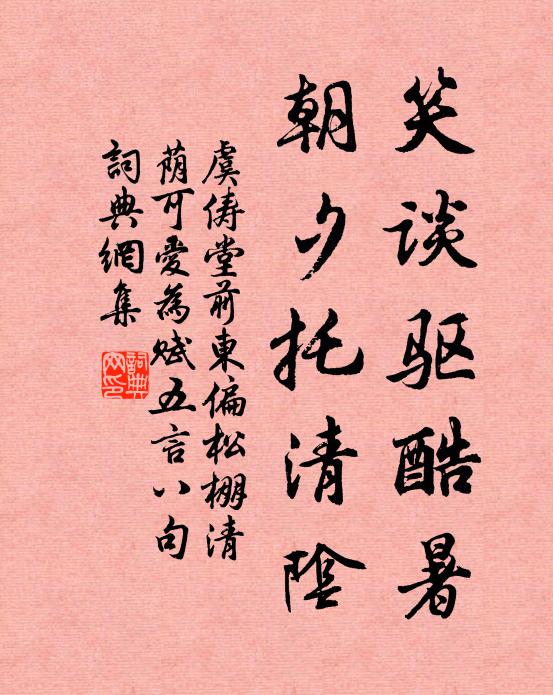 笑谈驱酷暑
朝夕托清陰
虞俦堂前東偏松棚清
荫可愛為赋五言八句
詞典網集
詞典網印